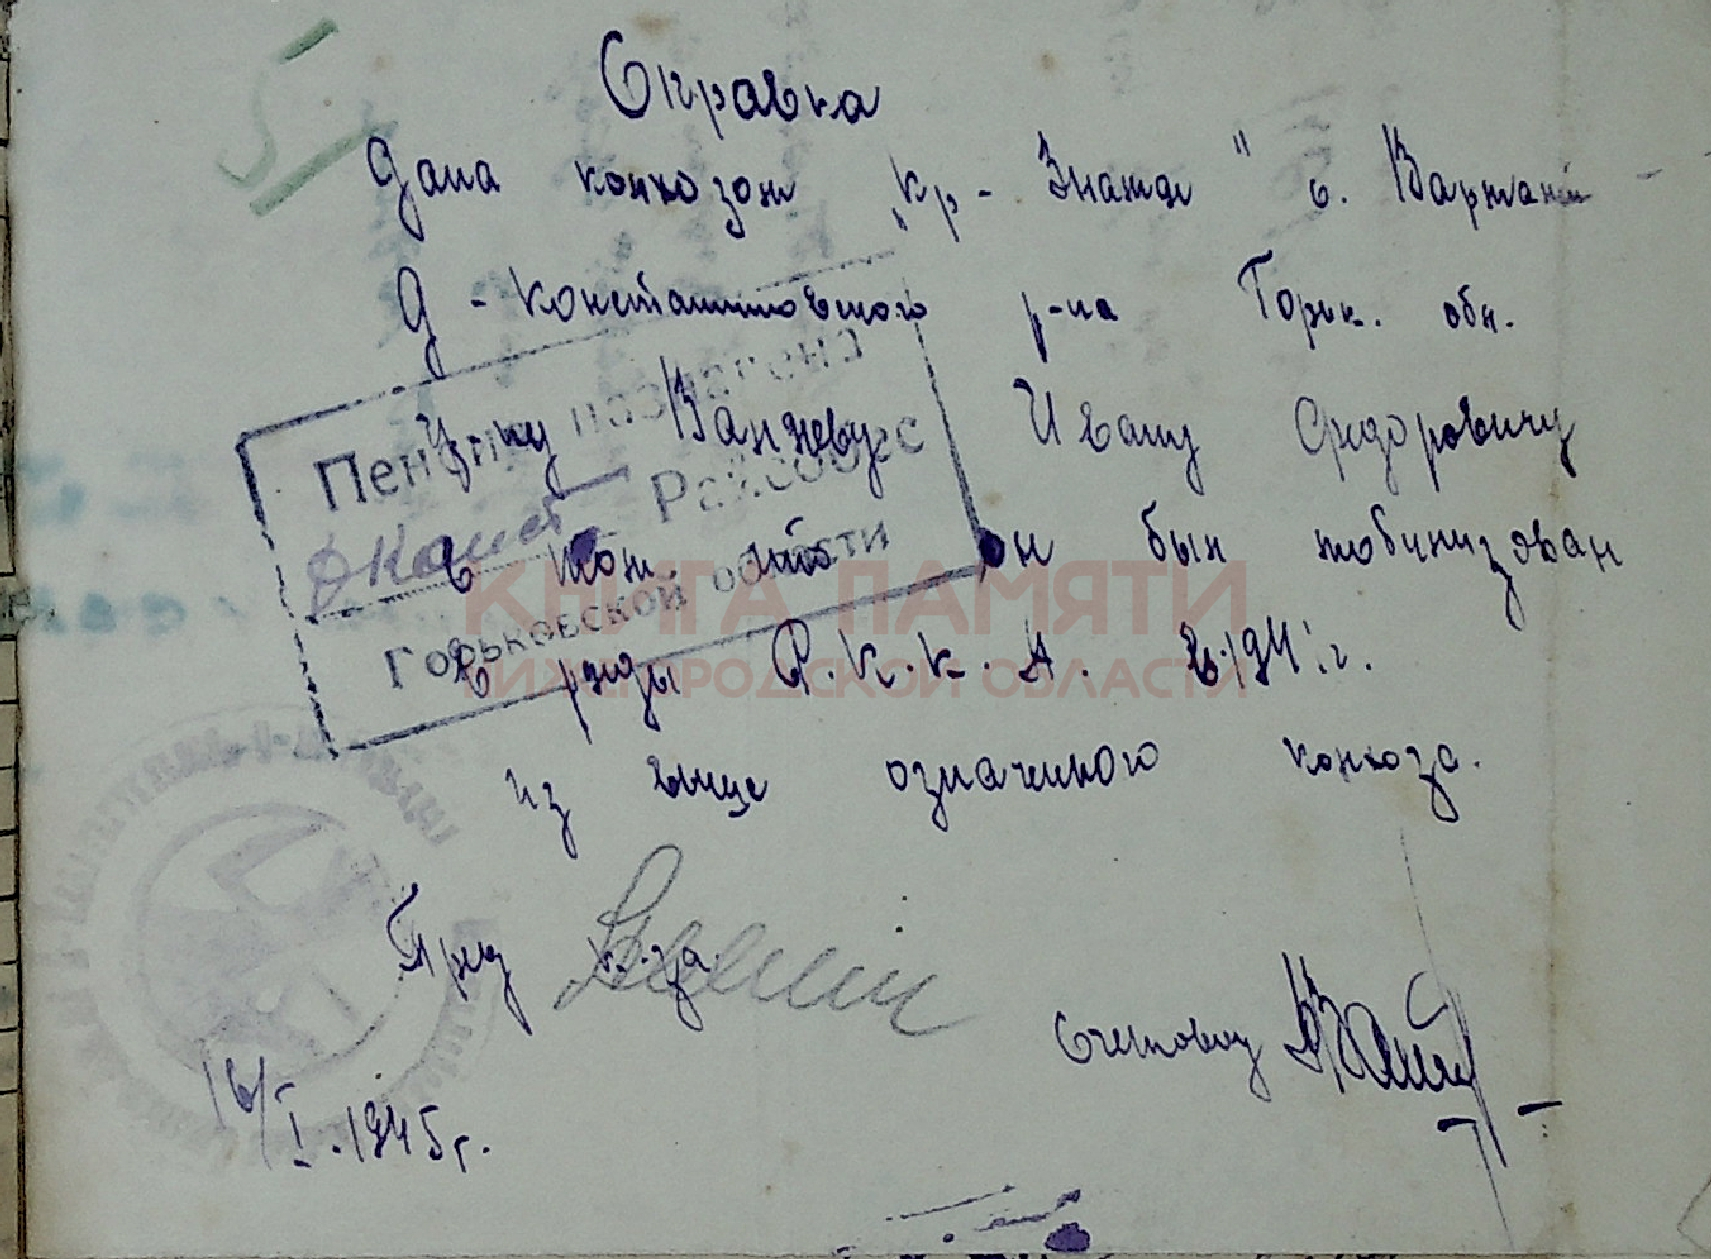 5
Справка
Дана колхозом „Кр-Знамя" с.
Д-Константиновского р-на Горьк. обл.
Ивану Федоровичу
в том что он был мобилизован
в ряды Р.К.К.А. в 1941 г.
из выше означеного колхоза.
Пред к-за
Счетовод
16/I.1945г.
Пенсия назначена
Райсобес
Горьковской области
КНИГА ПАМЯТИ
НИЖЕГОРОДСКОЙ ОБЛАСТИ